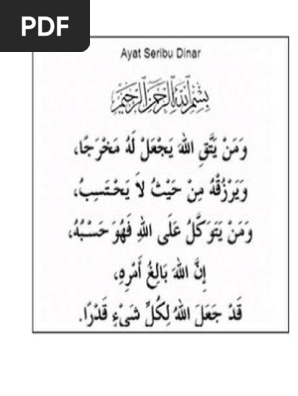 PDF
Ayat Seribu Dinar
بِسْمِ اللهِ الرَّحْمٰنِ الرَّحِيْمِ
وَمَنْ يَتَّقِ اللهَ يَجْعَلْ لَهُ مَخْرَجًا،
وَيَرْزُقْهُ مِنْ حَيْثُ لاَ يَحْتَسِبُ،
وَمَنْ يَتَوَكَّلْ عَلَى اللهِ فَهُوَ حَسْبُهُ،
إِنَّ اللهَ بَالِغُ أَمْرِهِ،
قَدْ جَعَلَ اللهُ لِكُلِّ شَيْءٍ قَدْرًا.